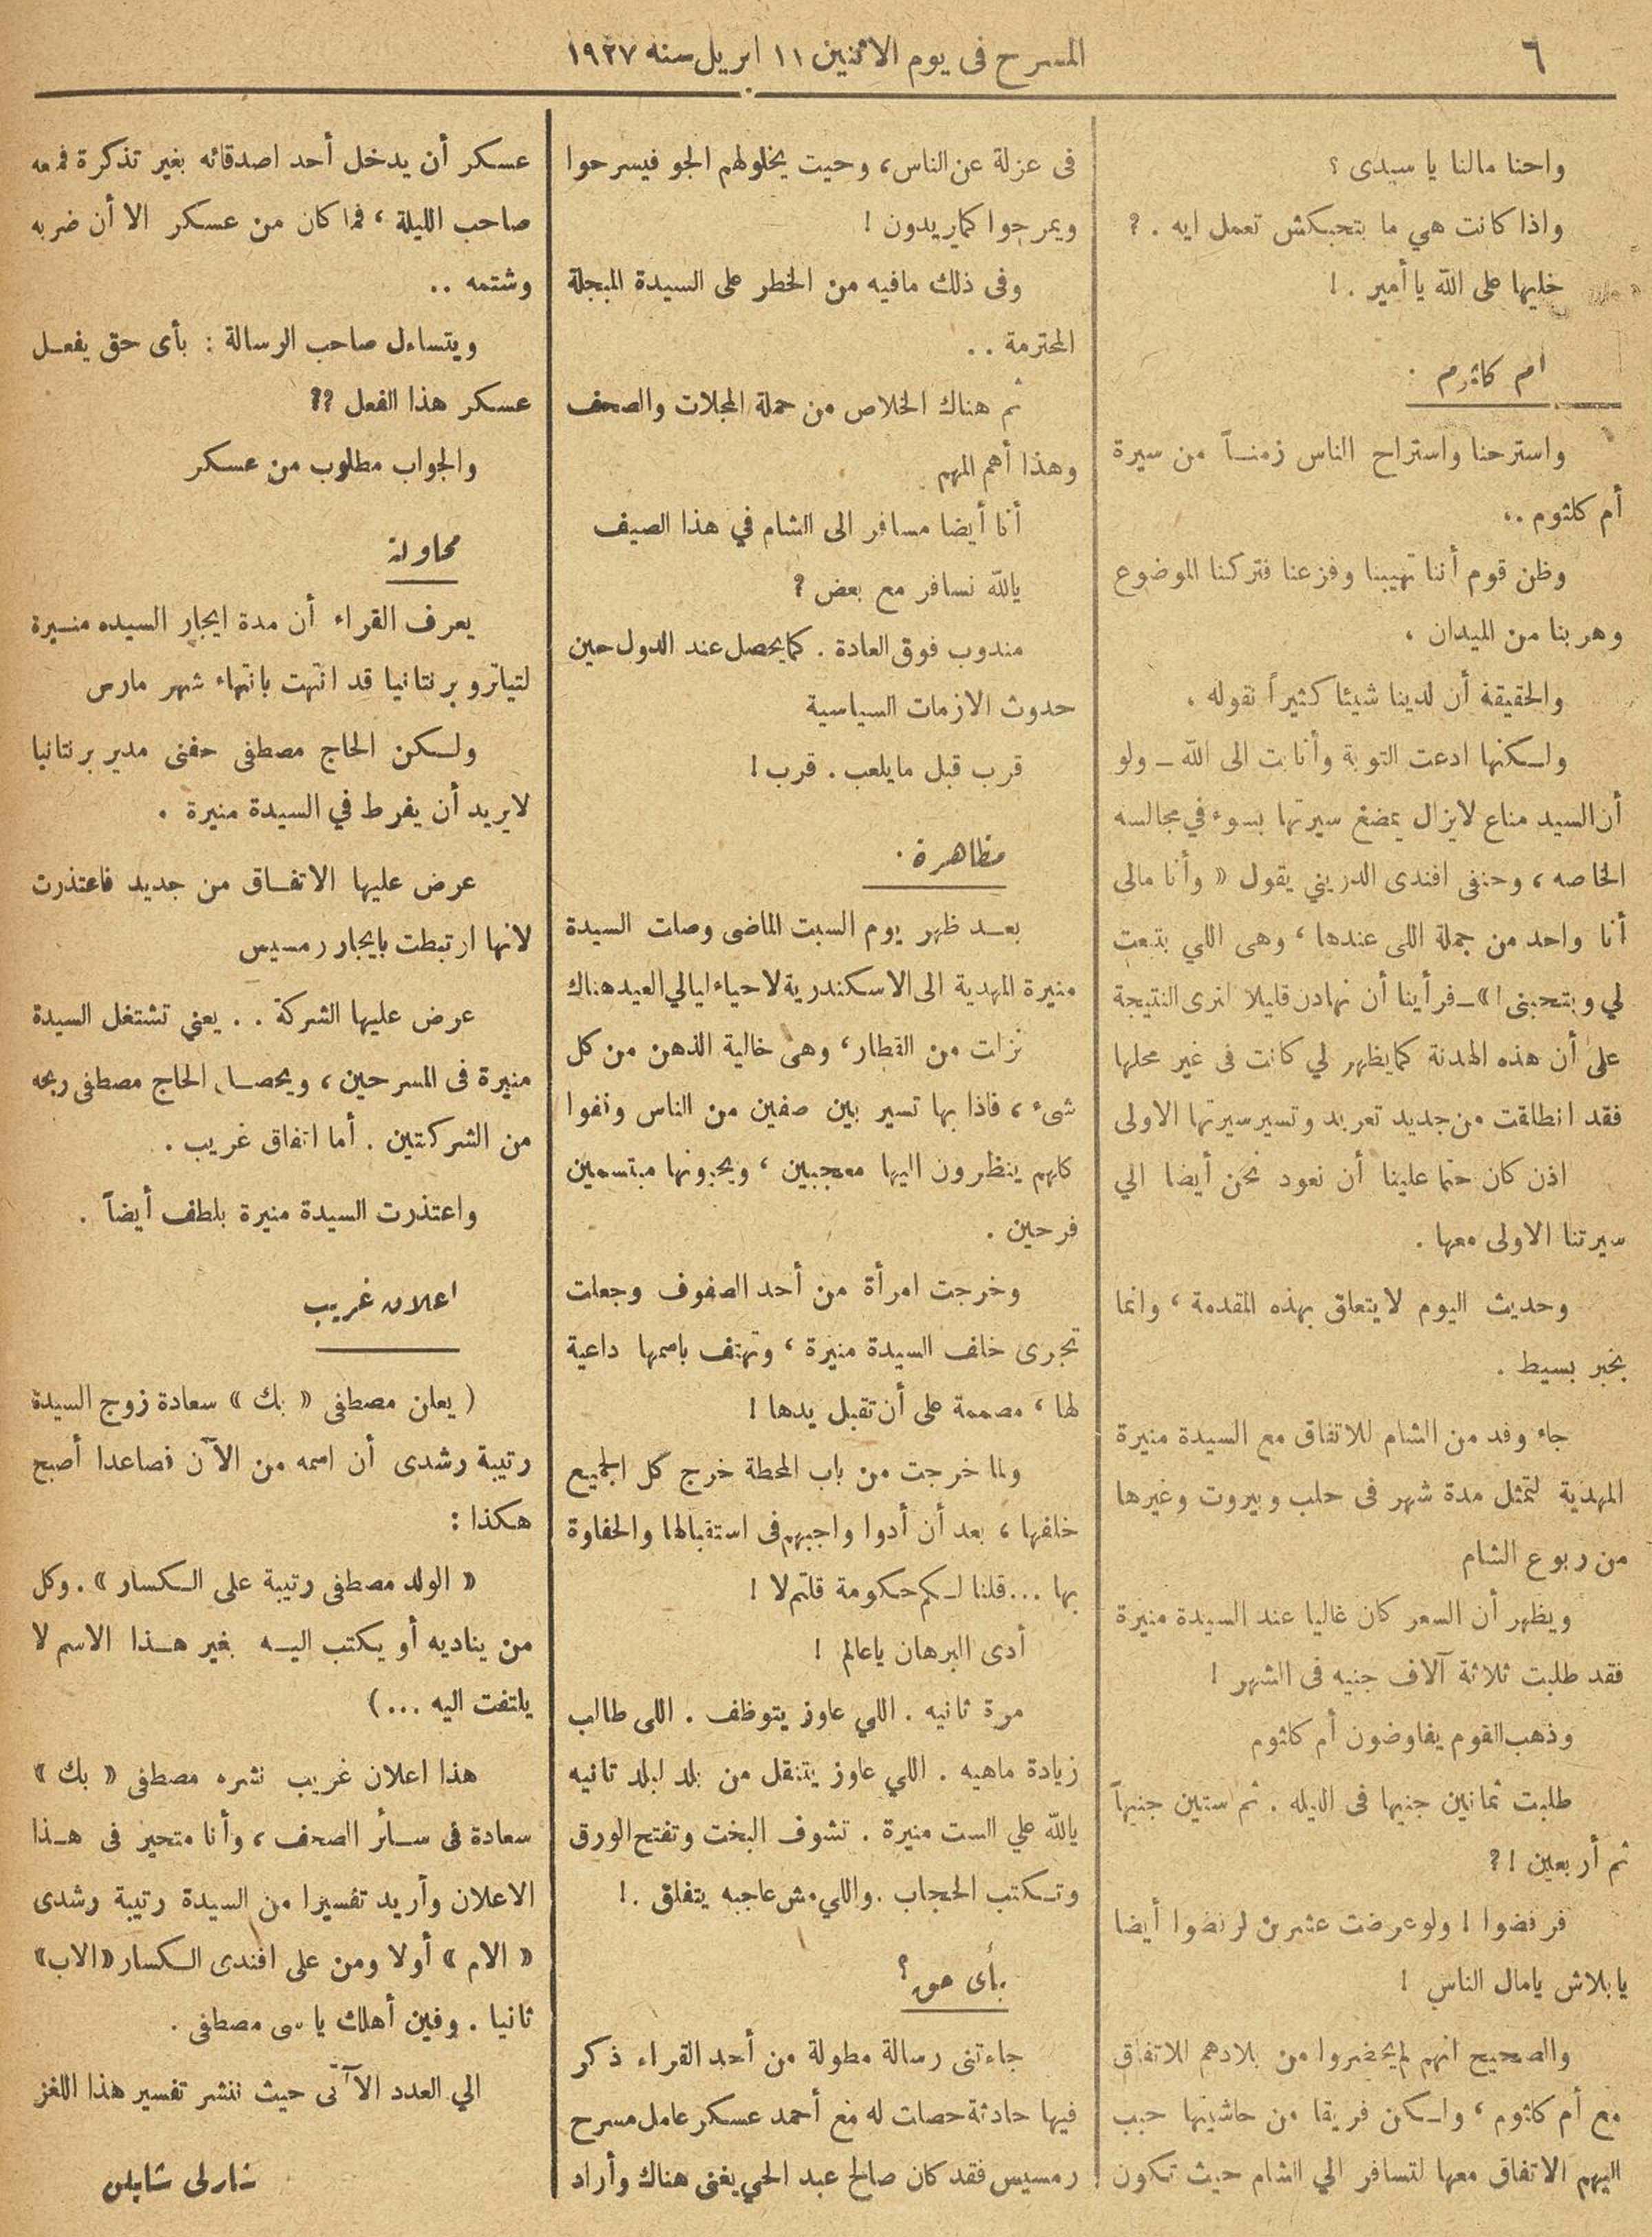 ٦
المسرح فى يوم الاثنين ١١ ابريل سنه ١٩٢٧
واحنا مالنا يا سيدى ؟
واذا كانت هي ما بتحبكش تعمل ايه . ?
خليها على الله يا أمير . !
ام كلثوم .
واسترحنا واستراح الناس زمنــاً من سيرة
أم كلثوم ..
وظن قوم أننا تهيبنا وفزعنا فتركنا الموضوع
وهربنا من الميدان ،
والحقيقة أن لدينا شيئا كثيراً نقوله ،
ولـكنها ادعت التوبة وأنابت الى الله ـ ولو
أن السيد مناع لايزال يمضغ سيرتها بسوء في مجالسه
الخاصه ، وحنفى افندى الدرينى يقول « وأنا مالى
أنا واحد من جملة اللى عندها ، وهى اللي بتبعت
لي وبتحبنى ! » ـ فرأينا أن نهادن قليلا لنرى النتيجة
على أن هذه الهدنة كما يظهر لي كانت فى غير محلها
فقد انطلقت من جديد تعربد وتسير سيرتها الاولى
اذن كان حتما علينا أن نعود نحن أيضا الي
سيرتنا الاولى معها .
وحديث اليوم لا يتعلق بهذه المقدمة ، وانما
بخبر بسيط .
جاء وفد من الشام للاتفاق مع السيدة منيرة
المهدية لتمثل مدة شهر فى حلب وبيروت وغيرها
من ربوع الشام
ويظهر أن السعر كان غاليا عند السيدة منيرة
فقد طلبت ثلاثة آلاف جنيه فى الشهر !
وذهب القوم يفاوضون أم كلثوم
طلبت ثمانين جنيها فى الليله . ثم ستين جنيهاً
ثم أربعين ! ?
فرفضوا ! ولو عرضت عشرين لرفضوا أيضا
يا بلاش يا مال الناس !
والصحيح انهم لم يحضروا من بلادهم للاتفاق
مع أم كلثوم ، ولـكن فريقا من حاشيتها حبب
اليهم الاتفاق معها لتسافر الي الشام حيث تكون
فى عزلة عن الناس ، وحيت يخلو لهم الجو فيسرحوا
ويمرحوا كما يريدون !
وفى ذلك مافيه من الخطر على السيدة المبجلة
المحترمة . .
ثم هناك الخلاص من حملة المجلات والصحف
وهذا أهم المهم
أنا أيضا مسافر الى الشام في هذا الصيف
يالله نسافر مع بعض ?
مندوب فوق العادة . كما يحصل عند الدول حين
حدوث الازمات السياسية
قرب قبل ما يلعب . قرب !
مظاهرة .
بعــد ظهر يوم السبت الماضى وصلت السيدة
منيرة المهدية الى الاسكندرية لاحياء ليالي العيد هناك
نزلت من القطار ، وهى خالية الذهن من كل
شىء ، فاذا بها تسير بين صفين من الناس وقفوا
كلهم ينظرون اليها معجبين ، ويحيونها مبتسمين
فرحين .
وخرجت امرأة من أحد الصفوف وجعلت
تجرى خلف السيدة منيرة ، وتهتف باسمها داعية
لها ، مصممة على أن تقبل يدها !
ولما خرجت من باب المحطة خرج كل الجميع
خلفها ، بعد أن أدوا واجبهم فى استقبالها والحفاوة
بها ... قلنا لـكم حكومة قلتم لا !
أدى البرهان يا عالم !
مرة ثانيه . اللي عاوز يتوظف . اللى طالب
زيادة ماهيه . اللي عاوز يتنقل من بلد لبلد تانيه
يالله علي الست منيرة . تشوف البخت وتفتح الورق
وتـكتب الحجاب . واللي مش عاجبه يتفلق . !
بأى حق ؟
جاءتنى رسالة مطولة من أحد القراء ذكر
فيها حادثة حصلت له مع أحمد عسكر عامل مسرح
رمسيس فقد كان صالح عبد الحي يغنى هناك وأراد
عسكر أن يدخل أحد اصدقائه بغير تذكرة فمنعه
صاحب الليلة ، فما كان من عسكر الا أن ضربه
وشتمه ..
ويتساءل صاحب الرسالة : بأى حق يفعـل
عسكر هذا الفعل ??
والجواب مطلوب من عسكر
محاولة
يعرف القراء أن مدة ايجار السيده منـيرة
لتياترو برنتانيا قد انتهت بانتهاء شهر مارس
ولـكن الحاج مصطفى حفنى مدير برنتانيا
لايريد أن يفرط في السيدة منيرة .
عرض عليها الاتفــاق من جديد فاعتذرت
لانها ارتبطت بايجار رمسيس
عرض عليها الشركة . . يعني تشتغل السيدة
منيرة فى المسرحين ، ويحصـل الحاج مصطفى ربحه
من الشركتين . أما اتفاق غريب .
واعتذرت السيدة منيرة بلطف أيضاً .
اعلان غريب
( يعلن مصطفى « بك » سعادة زوج السيدة
رتيبة رشدى أن اسمه من الآن فصاعدا أصبح
هكذا :
« الولد مصطفى رتيبة على الـكسار » . وكل
من يناديه أو يكتب اليــه بغير هــذا الاسم لا
يلتفت اليه ... )
هذا اعلان غريب نشره مصطفى « بك »
سعادة فى ســائر الصحف ، وأنا متحير فى هــذا
الاعلان وأريد تفسيرا من السيدة رتيبة رشدى
« الام » أولا ومن على افندى الـكسار « الاب »
ثانيا . وفين أهلك يا سى مصطفى .
الي العدد الآتى حيث ننشر تفسير هذا اللغز
شارلى شابلن